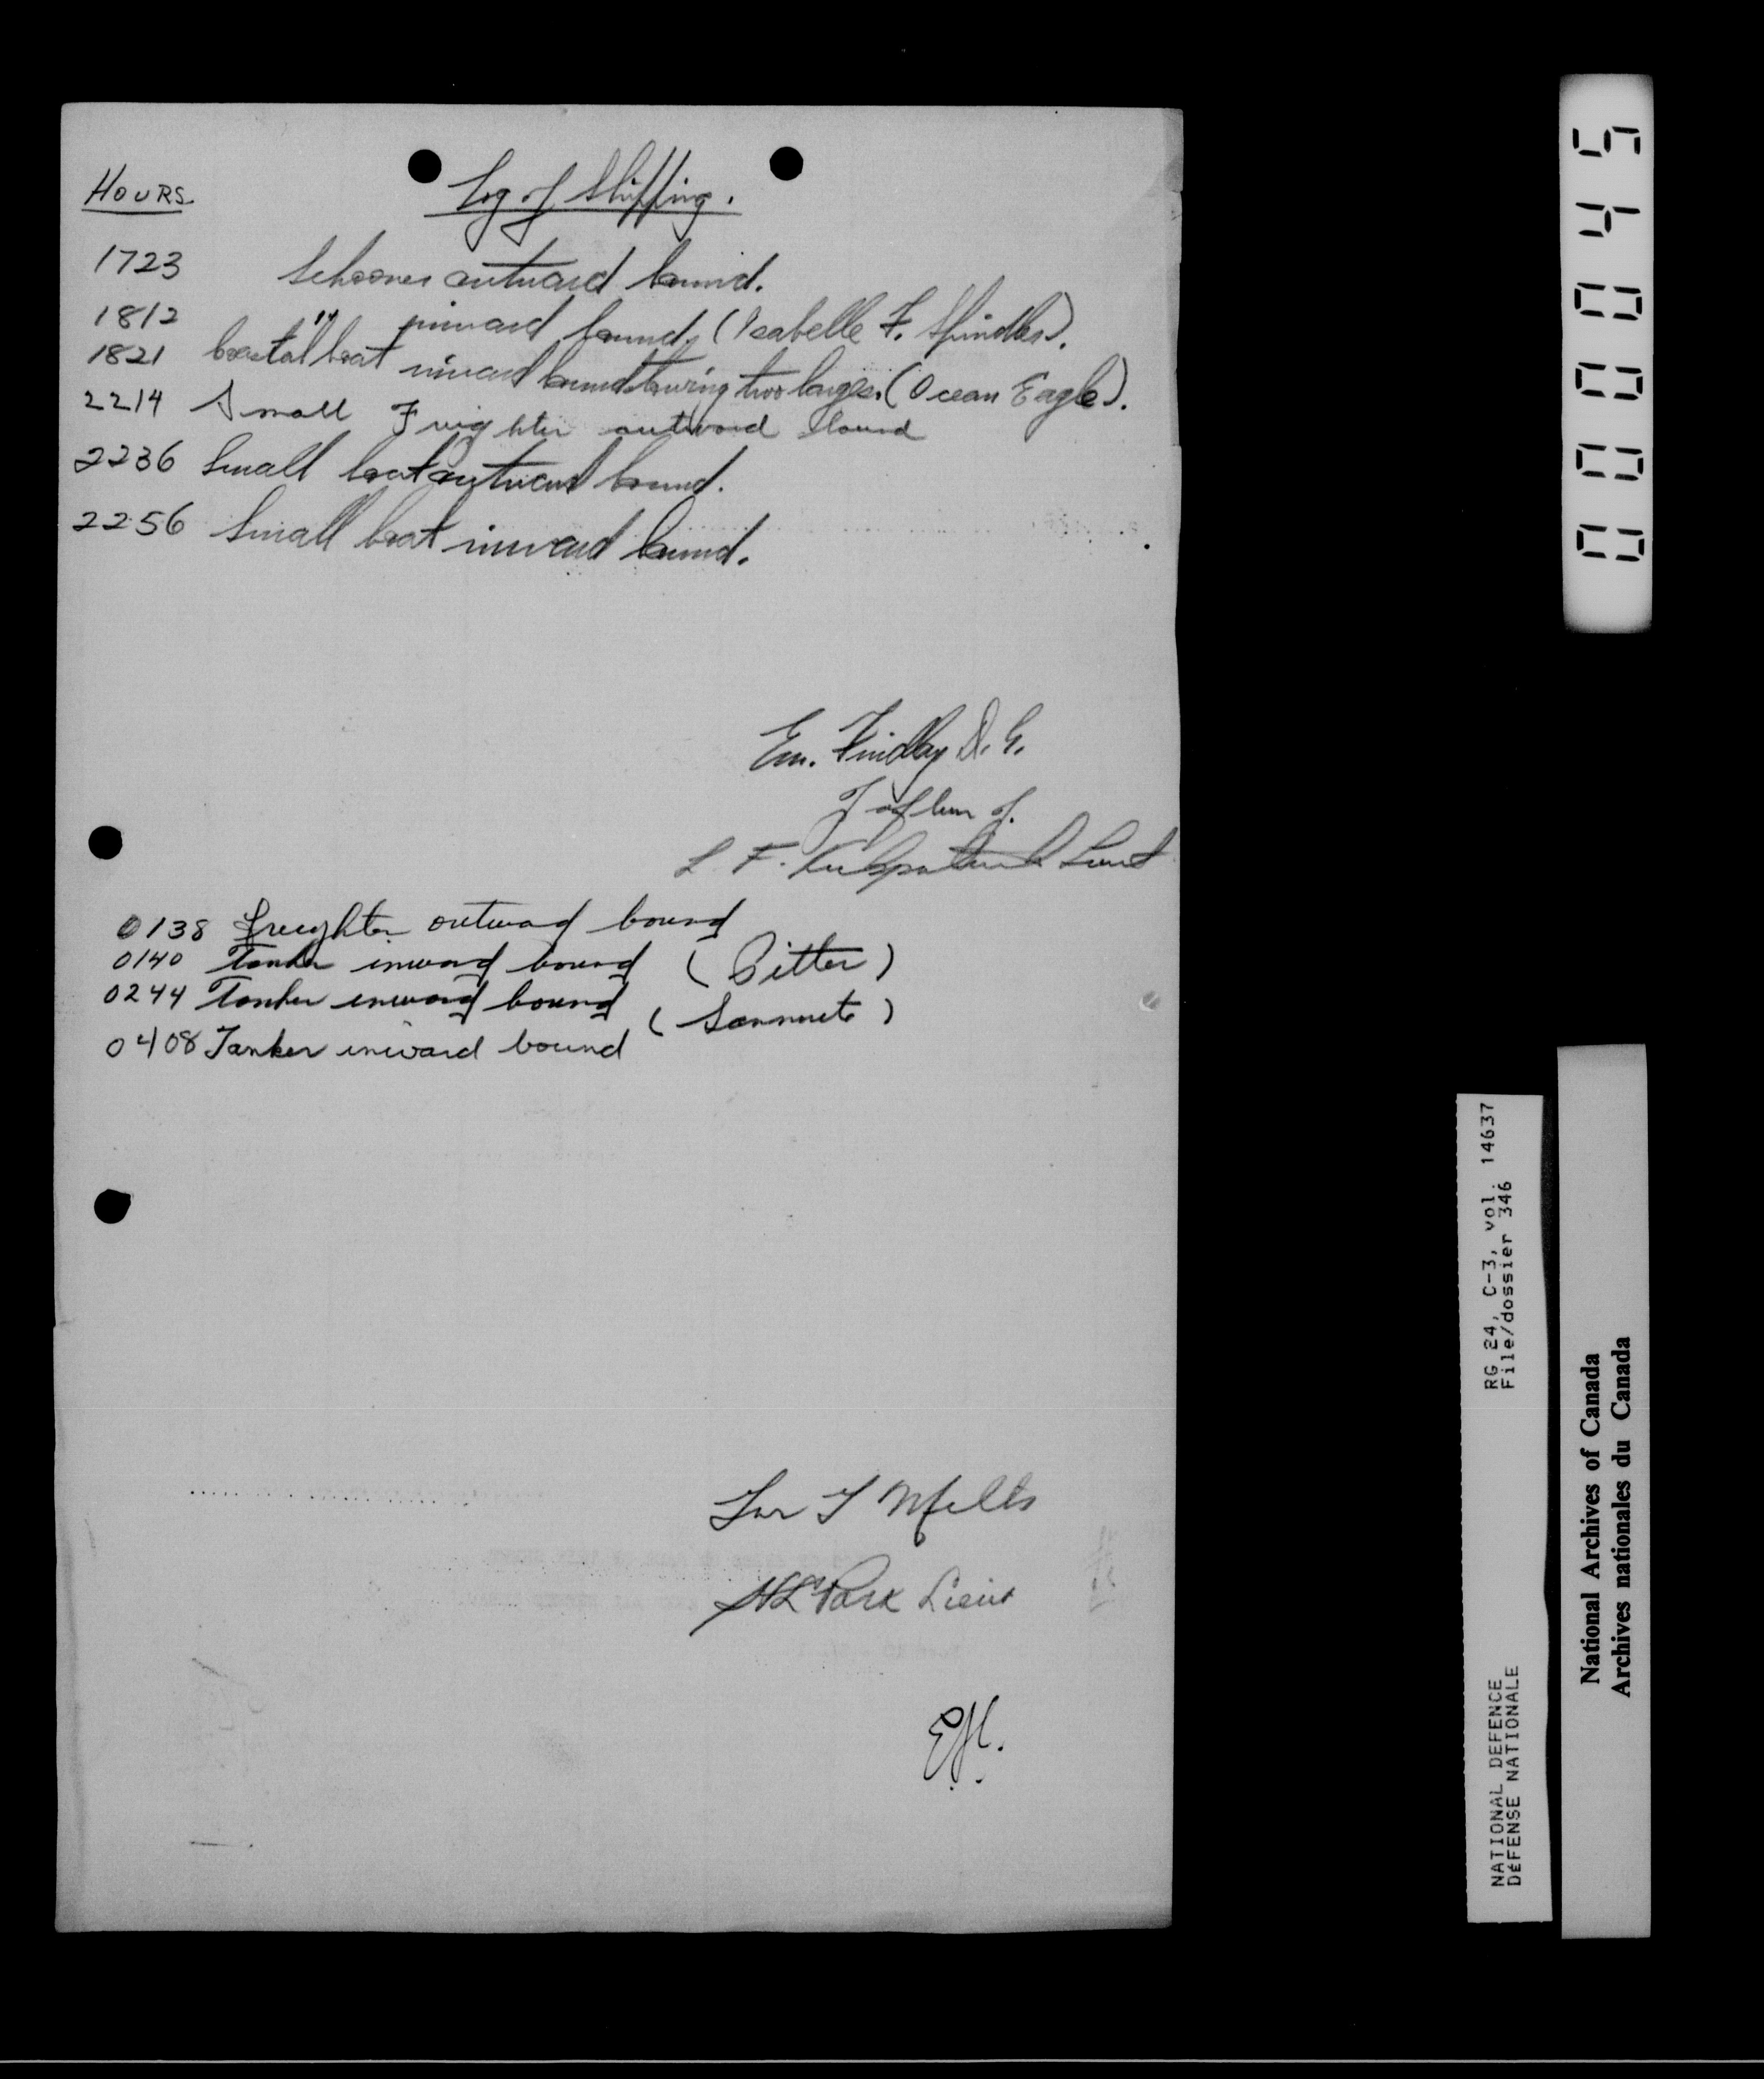 HOURS. Log of Shipping.
1723 Schooner outward bound.
1812 " inward bound. (Isabelle F. Spindler).
1821 Coastal boat inward bound towing two barges. (Ocean Eagle).
2214 Small Freighter outward bound
2236 Small boat outward bound.
2256 Small boat inward bound.
Em. Findlay
L F. Kirkpatrick Lieut
0138 freighter outward bound
0140 Tanker inward bound (Bitter)
0244 Tanker inward bound
0408 Tanker inward bound
Mills
Park Lieut
00000445
RG 24, C-3, vol. 14637
File/dossier 346
NATIONAL DEFENCE
DÉFENSE NATIONALE
National Archives of Canada
Archives nationales du Canada